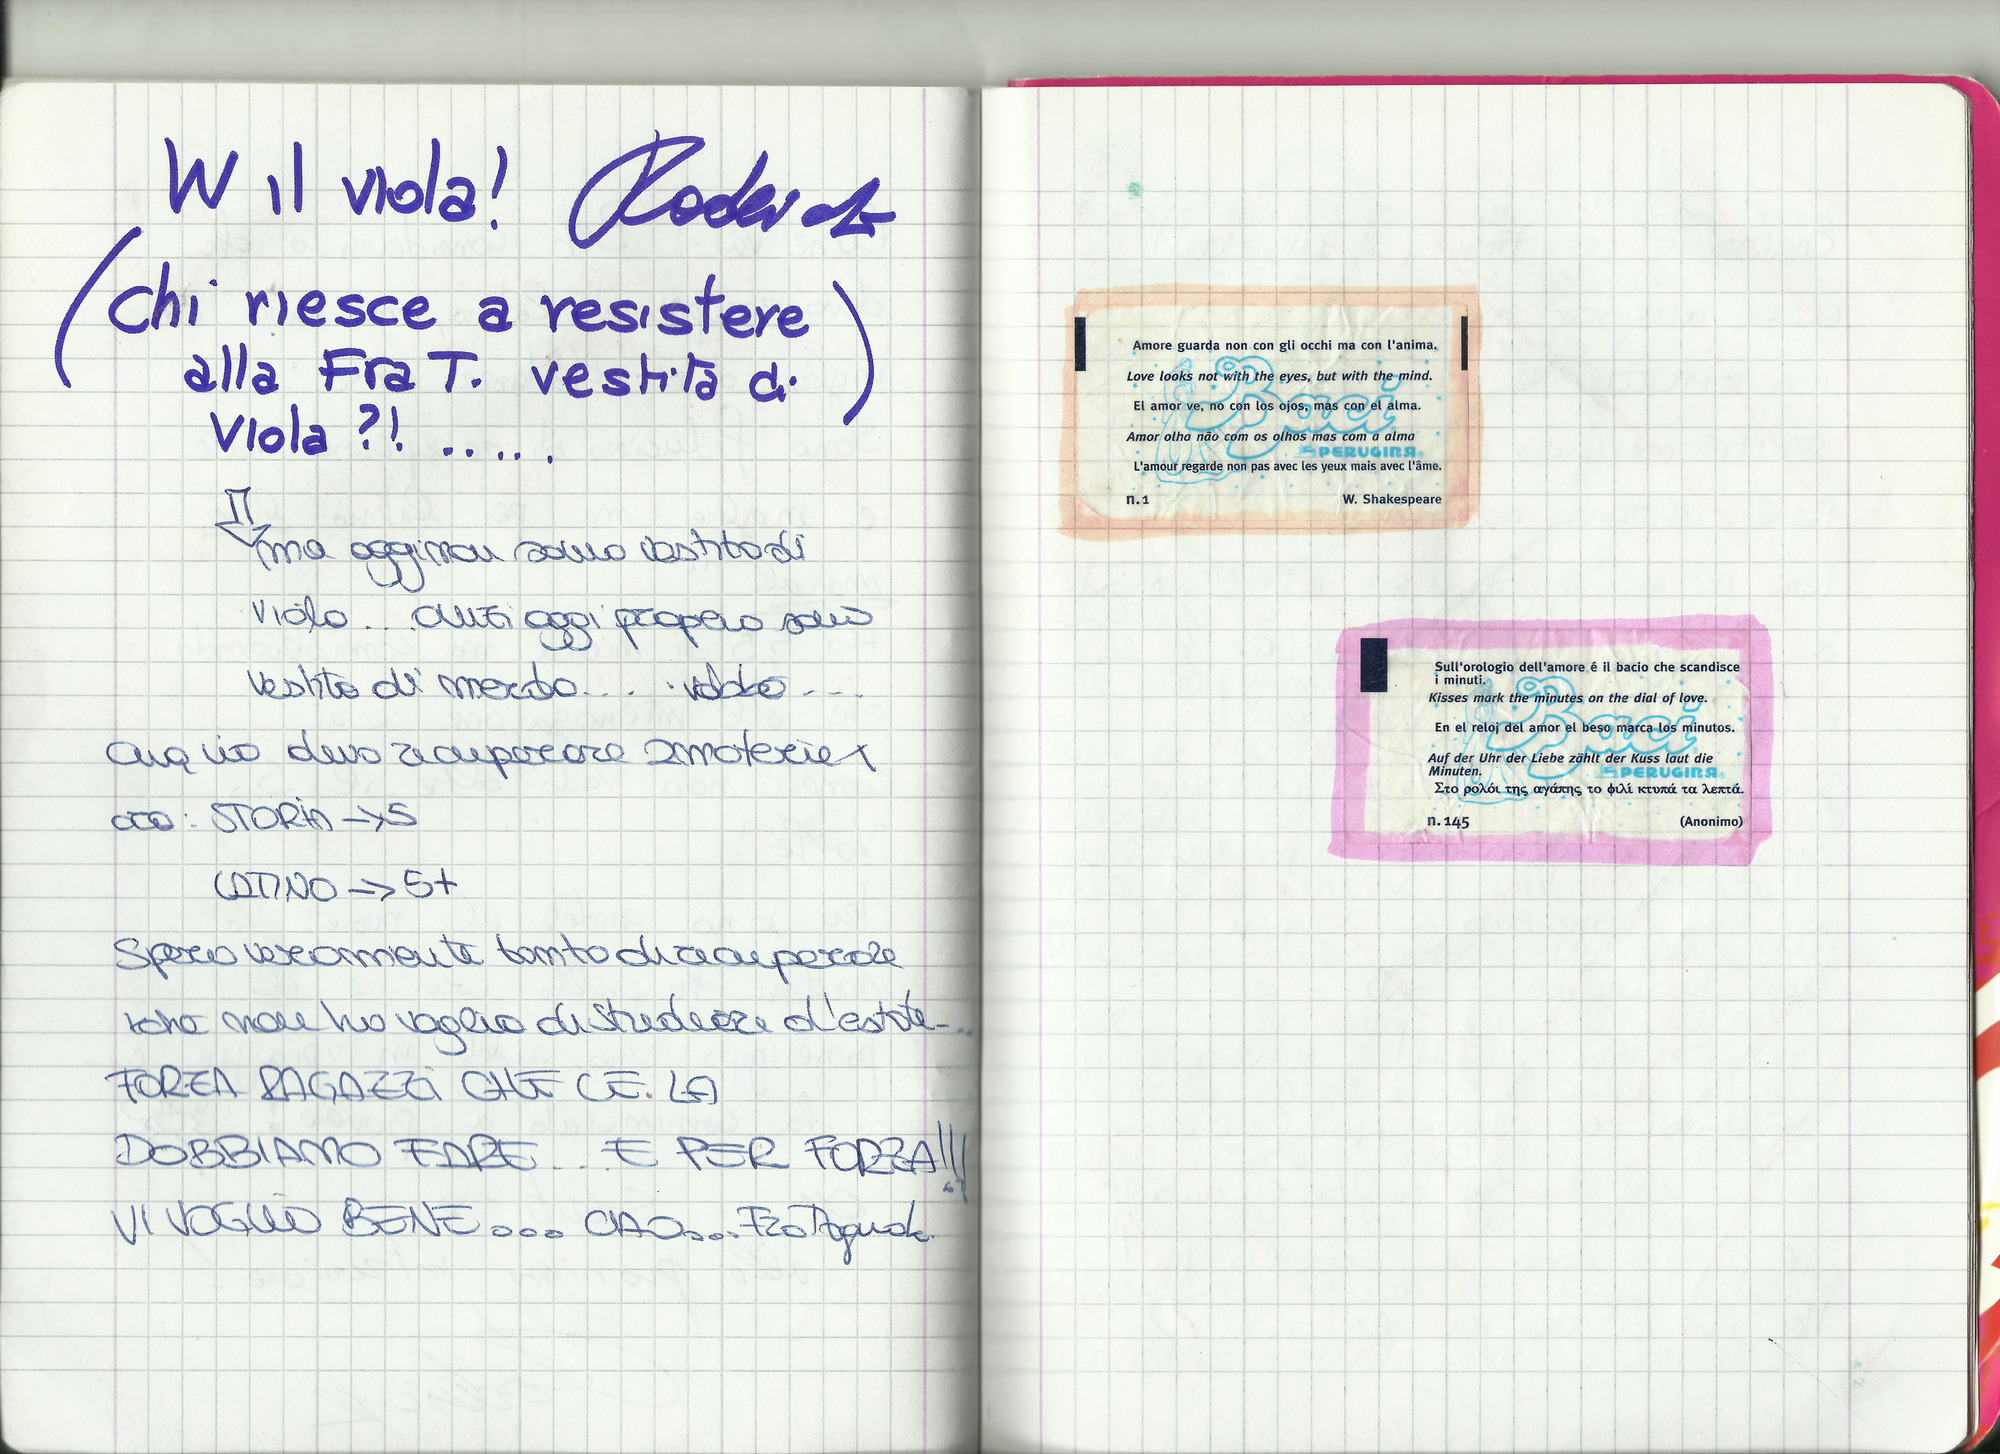 W il viola!
(Chi riesce a resistere
alla Fra T. vestita di
Viola?!.....)
ma oggi non sono vestita di
viola... anzi oggi proprio sono
vestita di merda....
devo recuperare 2 materie x
ora: STORIA → 5
LATINO → 5+
Spero veramente tanto di recuperare
non ho voglia di studiare d'estate...
FORZA RAGAZZI CHE CE LA
DOBBIAMO FARE... E PER FORZA!!!
VI VOGLIO BENE.... CIAO... Fra
Amore guarda non con gli occhi ma con l'anima.
Love looks not with the eyes, but with the mind.
El amor ve, no con los ojos, mas con el alma.
Amor olha não com os olhos mas com a alma
L'amour regarde non pas avec les yeux mais avec l'âme.
n.1 W. Shakespeare
Baci
PERUGINA
Sull'orologio dell'amore é il bacio che scandisce
i minuti.
Kisses mark the minutes on the dial of love.
En el reloj del amor el beso marca los minutos.
Auf der Uhr der Liebe zählt der Kuss laut die
Minuten.
Στο ρολόι της αγάπης το φιλί κτυπά τα λεπτά.
n.145 (Anonimo)
Baci
PERUGINA